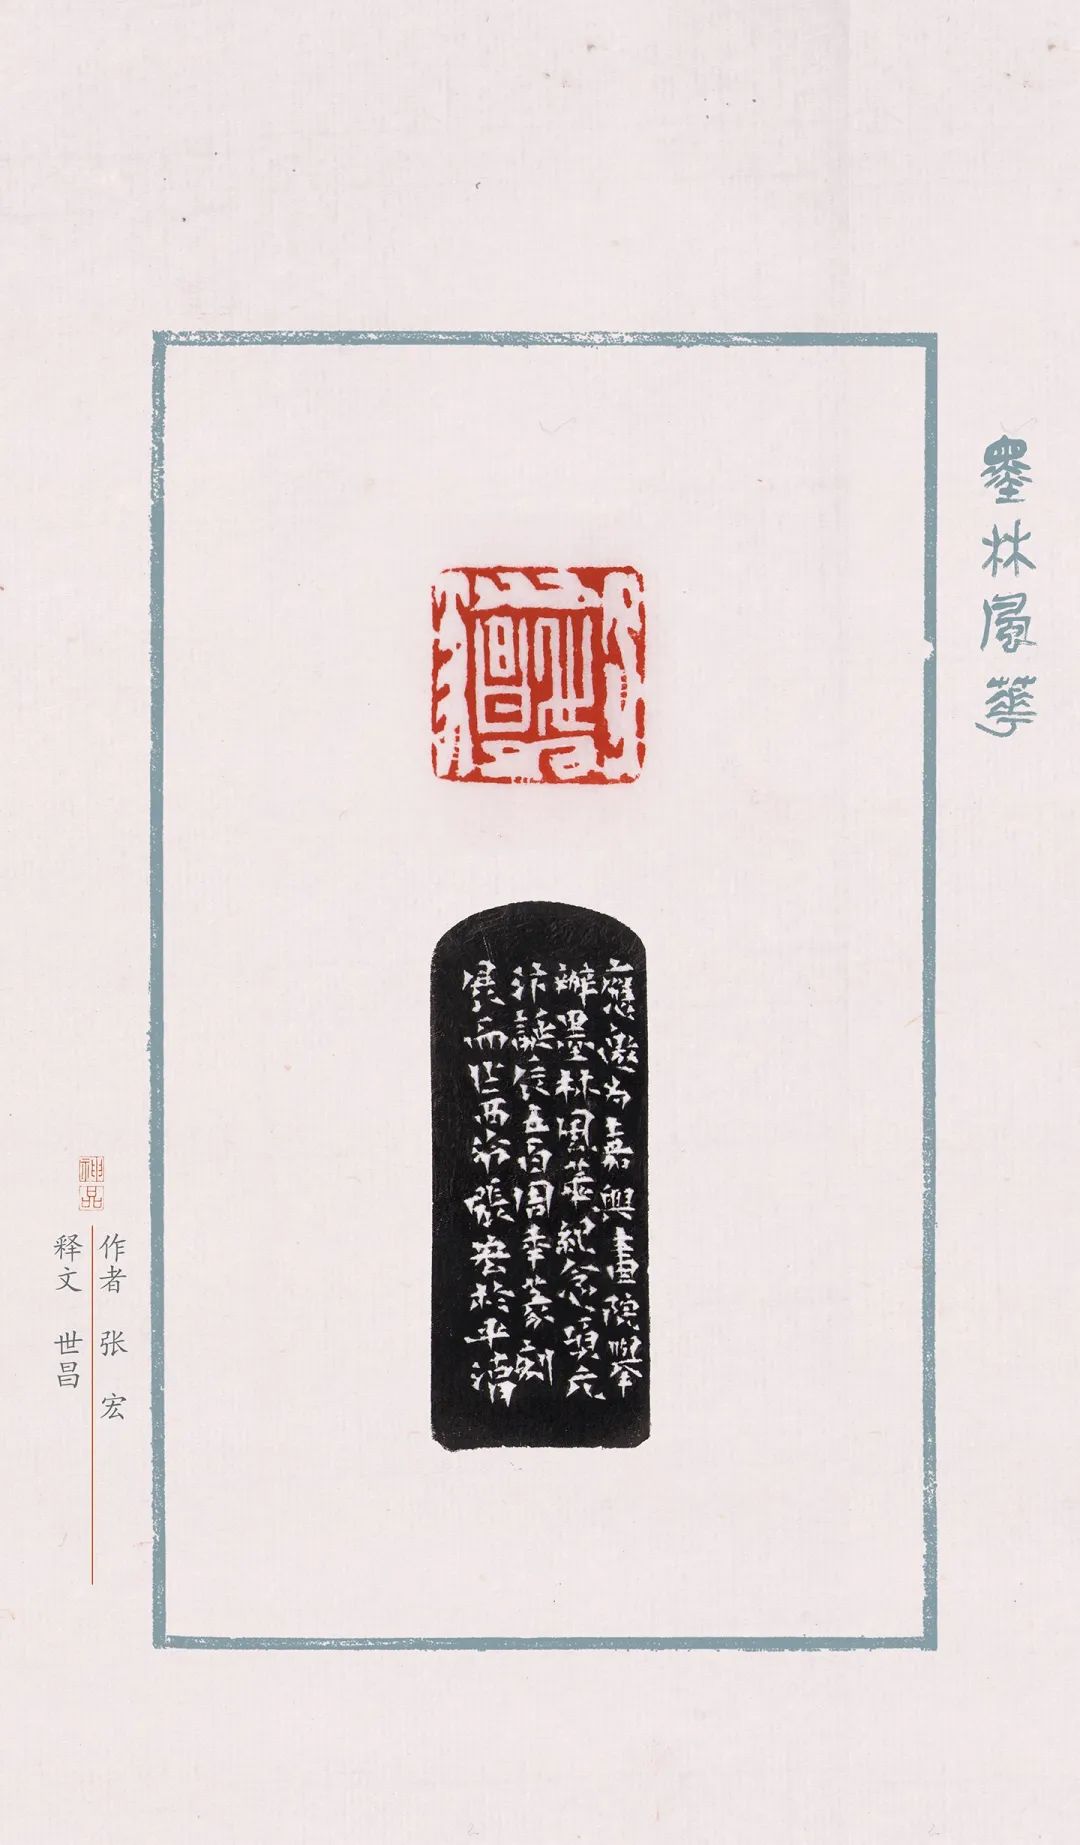 墨林風華
世昌
應邀为嘉興畫院舉
辦墨林風華紀念項元
汴誕辰五百周年篆刻
展而作西泠張宏於平湖
神品
作者 张宏
释文 世昌